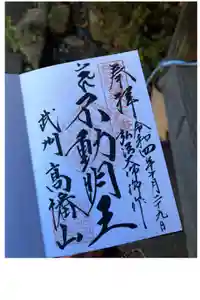 奉拝
令和四年十月二十九日
弘法大師御作
不動明王
武州
高幡山